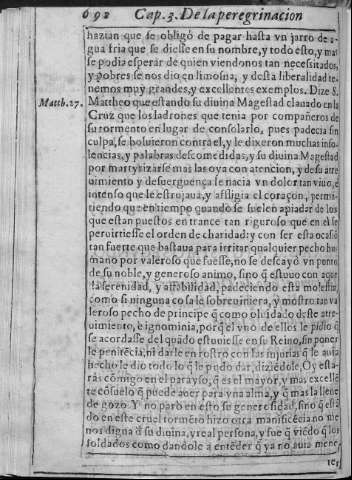 692 Cap. 3. De la peregrinacion
hazian que se obligó de pagar hasta vn jarro de a-
gua fria que se diesse en su nombre, y todo esto, y mas
se podia esperar de quien viendonos tan necessitados,
y pobres se nos dio en limosna, y desta liberalidad te-
nemos muy grandes, y excellentes exemplos. Dize S.
Matth. 27. Mattheo que estando su diuina Magestad clauado en la
Cruz que los ladrones que tenia por compañeros de
su tormento en lugar de consolarlo, pues padecia sin
culpa, se boluieron contra el, y le dixeron muchas inso-
lencias, y palabras descomedidas, y su diuina Magestad
por martyrizarse mas las oya con atencion, y desu atre
uimiento y desuerguença se nacia vn dolor tan viuo, è
intenso que le estrujaua, y affligia el coraçon, permi-
tiendo que en tiempo quando se suelen apiadar de los
que estan puestos en trance tan riguroso que en el se
peruirtiesse el orden de charidad: y con ser esta ocasiō
tan fuerte que bastaua para irritar qualquier pecho hu
mano por valeroso que fuesse, no se descayò vn punto
de su noble, y generoso animo, sino q̃ estuuo con
la serenidad, y affabilidad, padeciendo esta molestia,
como si ninguna cosa le sobreuiniera, y mostro tan va
leroso pecho de principe q̃ como oluidado deste atre-
uimiento, è ignominia, porq̃ el vno de ellos le pidio q̃
se acordasse del quādo estuuiesse en su Reino, sin poner
le penitēcia, ni darle en rostro con las injurias q̃ le auia
hecho le dio todo lo q̃ le pudo dar, diziēdole, Oy esta-
ràs cōmigo en el parayso, q̃ es el mayor, y mas excellē
te cōsuelo q̃ puede auer para vna alma, y q̃ mas la llene
de gozo. Y no parò en esto su generosidad, sino q̃ estā
do en este cruel tormēto hizo otra manificēcia no me
nos digna d̃ su diuina, y real persona, y fue q̃ viēdo q̃ los
soldados como dandole a entēder q̃ ya no auia mene